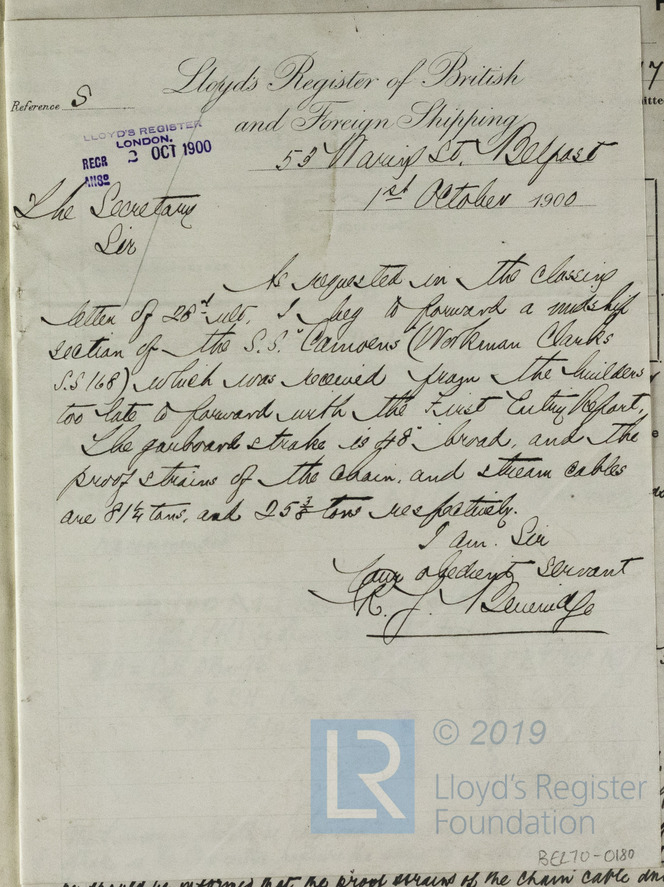 Lloyd's Register of British
and Foreign Shipping
Reference S
LLOYD'S REGISTER
LONDON.
RECR 2 OCT 1900
53 Waring St. Belfast
1st October 1900
The Secretary
Sir
As requested in the classing
letter of 28th ult, I beg to forward a midship
section of the S.S. "Camoens (Workman Clarks
S.S 168) which was received from the builders
too late to forward with the First Entry Report.
The garboard strake is 48" broad, and the
proof strains of the chain, and stream cables
are 81¼ tons, and 25⅜ tons respectively.
I am. Sir
Your obedient servant
R. J. Beveridge
LR
© 2019
Lloyd's Register
Foundation
BEL70-0180
should be informed that the proof strains of the chain cable and